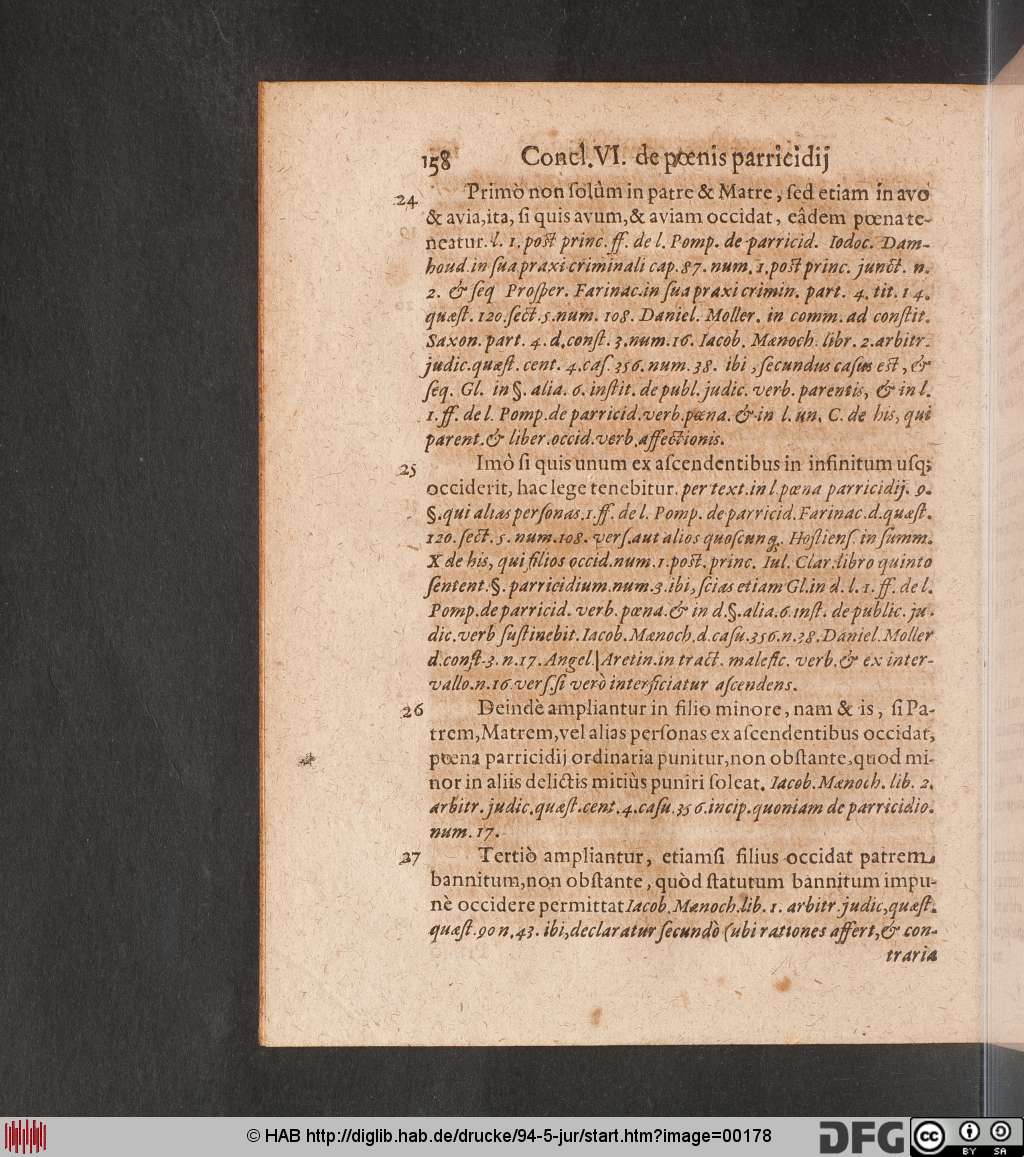 158 Concl. VI. de pœnis parricidij
24 Primò non ſolùm in patre & Matre, ſed etiam in avo
& avia, ita, ſi quis avum, & aviam occidat, eâdem pœna te-
neatur. l. 1. poſt princ. ff. de l. Pomp. de parricid. Iodoc. Dam-
houd. in ſua praxi criminali cap. 87. num. 1. poſt princ. junct. n.
2. & ſeq Proſper. Farinac. in ſua praxi crimin. part. 4. tit. 14.
quæſt. 120. ſect. 5. num. 108. Daniel. Moller. in comm. ad conſtit.
Saxon. part. 4. d. conſt. 3. num. 16. Iacob. Mænoch. libr. 2. arbitr.
judic. quæſt. cent. 4. caſ. 356. num. 38. ibi, ſecundus caſus eſt, &
ſeq. Gl. in §. alia. 6. inſtit. de publ. judic. verb. parentis, & in l.
1. ff. de l. Pomp. de parricid. verb. pœna. & in l. un. C. de his, qui
parent. & liber. occid. verb. affectionis.
25 Imò ſi quis unum ex aſcendentibus in infinitum uſq;
occiderit, hac lege tenebitur. per text. in l. pœna parricidij. 9.
§. qui alias perſonas. 1. ff. de l. Pomp. de parricid. Farinac. d. quæſt.
120. ſect. 5. num. 108. verſ. aut alios quoſcunq;. Hoſtienſ. in ſumm.
X de his, qui filios occid. num. 1. poſt. princ. Iul. Clar. libro quinto
ſentent. §. parricidium. num. 3. ibi, ſcias etiam Gl. in d. l. 1. ff. de l.
Pomp. de parricid. verb. pœna. & in d. §. alia. 6. inſt. de public. ju-
dic. verb ſuſtinebit. Iacob. Mænoch. d. caſu. 356. n. 38. Daniel. Moller
d. conſt. 3. n. 17. Angel. Aretin. in tract. malefic. verb. & ex inter-
vallo. n. 16. verſ. ſi verò interficiatur aſcendens.
26 Deindè ampliantur in filio minore, nam & is, ſi Pa-
trem, Matrem, vel alias perſonas ex aſcendentibus occidat,
pœna parricidij ordinaria punitur, non obſtante, quod mi-
nor in aliis delictis mitiùs puniri ſoleat. Iacob. Mænoch. lib. 2.
arbitr. judic. quæſt. cent. 4. caſu. 356. incip. quoniam de parricidio.
num. 17.
27 Tertiò ampliantur, etiamſi filius occidat patrem
bannitum, non obſtante, quòd ſtatutum bannitum impu-
nè occidere permittat Iacob. Mænoch. lib. 1. arbitr. judic, quæſt.
quæſt. 90 n. 43. ibi, declaratur ſecundò (ubi rationes affert, & con-
traria
© HAB http://diglib.hab.de/drucke/94-5-jur/start.htm?image=00178
DFG
cc BY SA